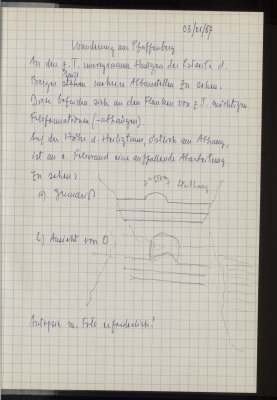 03/01/87
Wanderung am Pfaffenberg
An den z.T. bewachsenen Hängen der Ostseite d.
Berges sind mehrere Abbaustellen zu sehen.
Diese befinden sich an den Flanken von z.T. mächtigen
Felsformationen (-abhängen).
Auf der Höhe d. östlich am Abhang,
ist an e. Felswand eine auffallende Abarbeitung
zu sehen:
a) Grundriß
Steilhang
b) Ansicht von O
Autopsie m. Foto erforderlich!